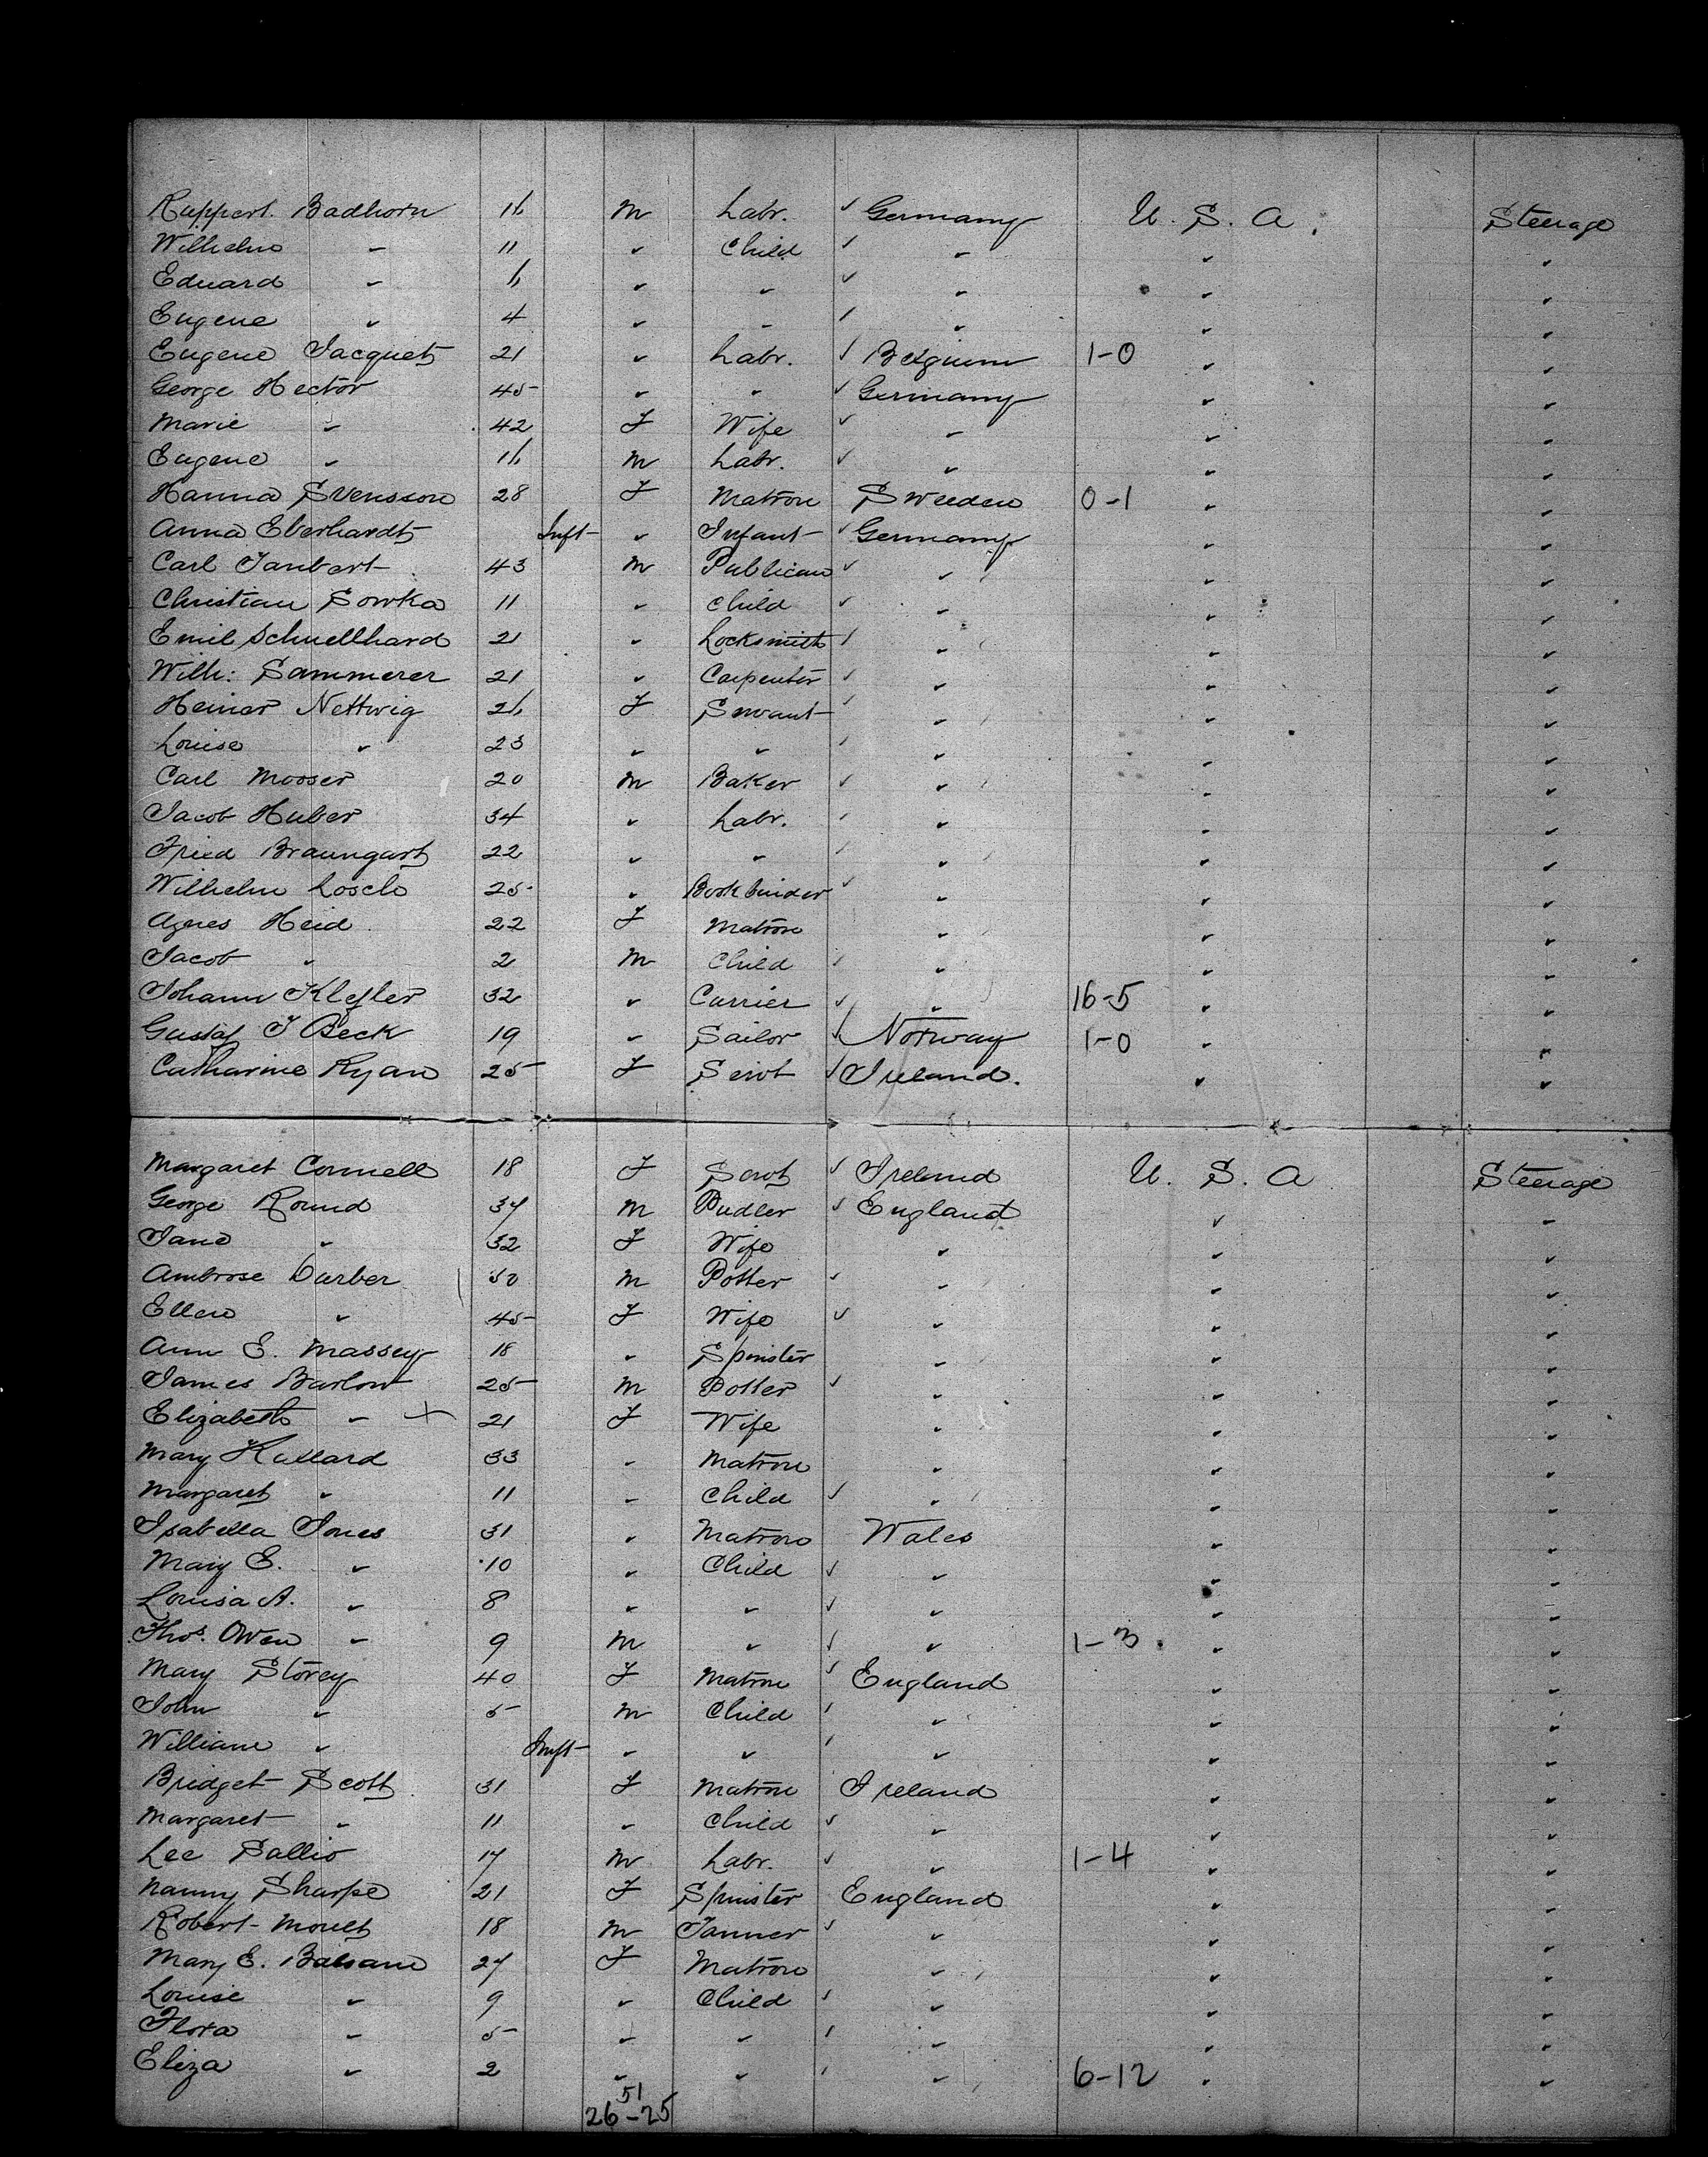 Ruppert Badhorn 16 M Labr. ✓ Germany U. S. A. Steerage
Wilhelm " 11 " Child ✓ " " "
Eduard " 6 " " ✓ " " "
Eugene " 4 " " ✓ " " "
Eugene Jacquet 21 " Labr. ✓ Belgium 1-0 " "
George Hector 45 " " ✓ Germany " "
Marie " 42 F Wife ✓ " " "
Eugene " 16 M Labr. ✓ " " "
Hanna Svensson 28 F Matron Sweeden 0-1 " "
Anna Eberhardt Inft " Infant ✓ Germany " "
Carl Taubert 43 M Publican ✓ " " "
Christian Sowka 11 " Child ✓ " " "
Emil Schnellhard 21 " Locksmith ✓ " " "
Wilh: Sammerer 21 " Carpenter ✓ " " "
Heiner Nettwig 26 F Servant ✓ " " "
Louise " 23 " " ✓ " " "
Carl Mooser 20 M Baker ✓ " " "
Jacob Huber 34 " Labr. ✓ " " "
Fried Braungart 22 " " ✓ " " "
Wilhelm Losch 25 " Bookbinder ✓ " " "
Agnes Heid 22 F Matron " " "
Jacob " 2 M Child ✓ " " "
Johann Klefler 32 " Currier ✓ " 16-5 " "
Gustaf J Beck 19 " Sailor ✓ Norway 1-0 " "
Catharine Ryan 25 F Servt ✓ Ireland. " "
Margaret Connell 18 F Servt ✓ Ireland U. S. A Steerage
George Round 37 M Pudler ✓ England " "
Jane " 32 F Wife " " "
Ambrose Durber 50 M Potter ✓ " " "
Ellen " 45 F Wife ✓ " " "
Ann E. Massey 18 " Spinster " " "
James Barlow 25 M Potter ✓ " " "
Elizabeth " 21 F Wife " " "
Mary Hallard 33 " Matron " " "
Margaret " 11 " Child ✓ " " "
Isabella Jones 31 " Matron Wales " "
Mary E. " 10 " Child ✓ " " "
Louisa A. " 8 " " ✓ " " "
Thos. Owen " 9 M " ✓ " 1-3 " "
Mary Storey 40 F Matron ✓ England " "
John " 5 M Child ✓ " " "
William " Inft " " ✓ " " "
Bridget Scott 31 F Matron Ireland " "
Margaret " 11 " Child ✓ " " "
Lee Sallis 17 M Labr. ✓ " 1-4 " "
Nanny Sharpe 21 F Spinster England " "
Robert Moult 18 M Tanner ✓ " " "
Mary E. Balsam 27 F Matron " " "
Louise " 9 " Child ✓ " " "
Flora " 5 " " ✓ " " "
Eliza " 2 " " ✓ " 6-12 " "
51
26-25